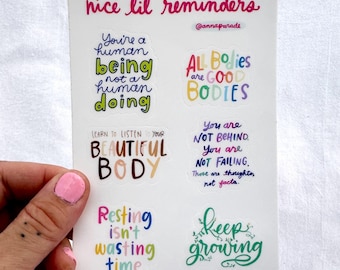 nice lil reminders
@annaparade
You're a
human
being
not a
human
doing
ALL BODiES
are GOOD
BODIES
LEARN TO LISTEN TO YOUR
BEAUTIFUL
BODY
You are
NOT BEHIND.
You are
NOT FAILING.
These are thoughts,
not facts.
Resting
isn't
wasting
time
keep
growing